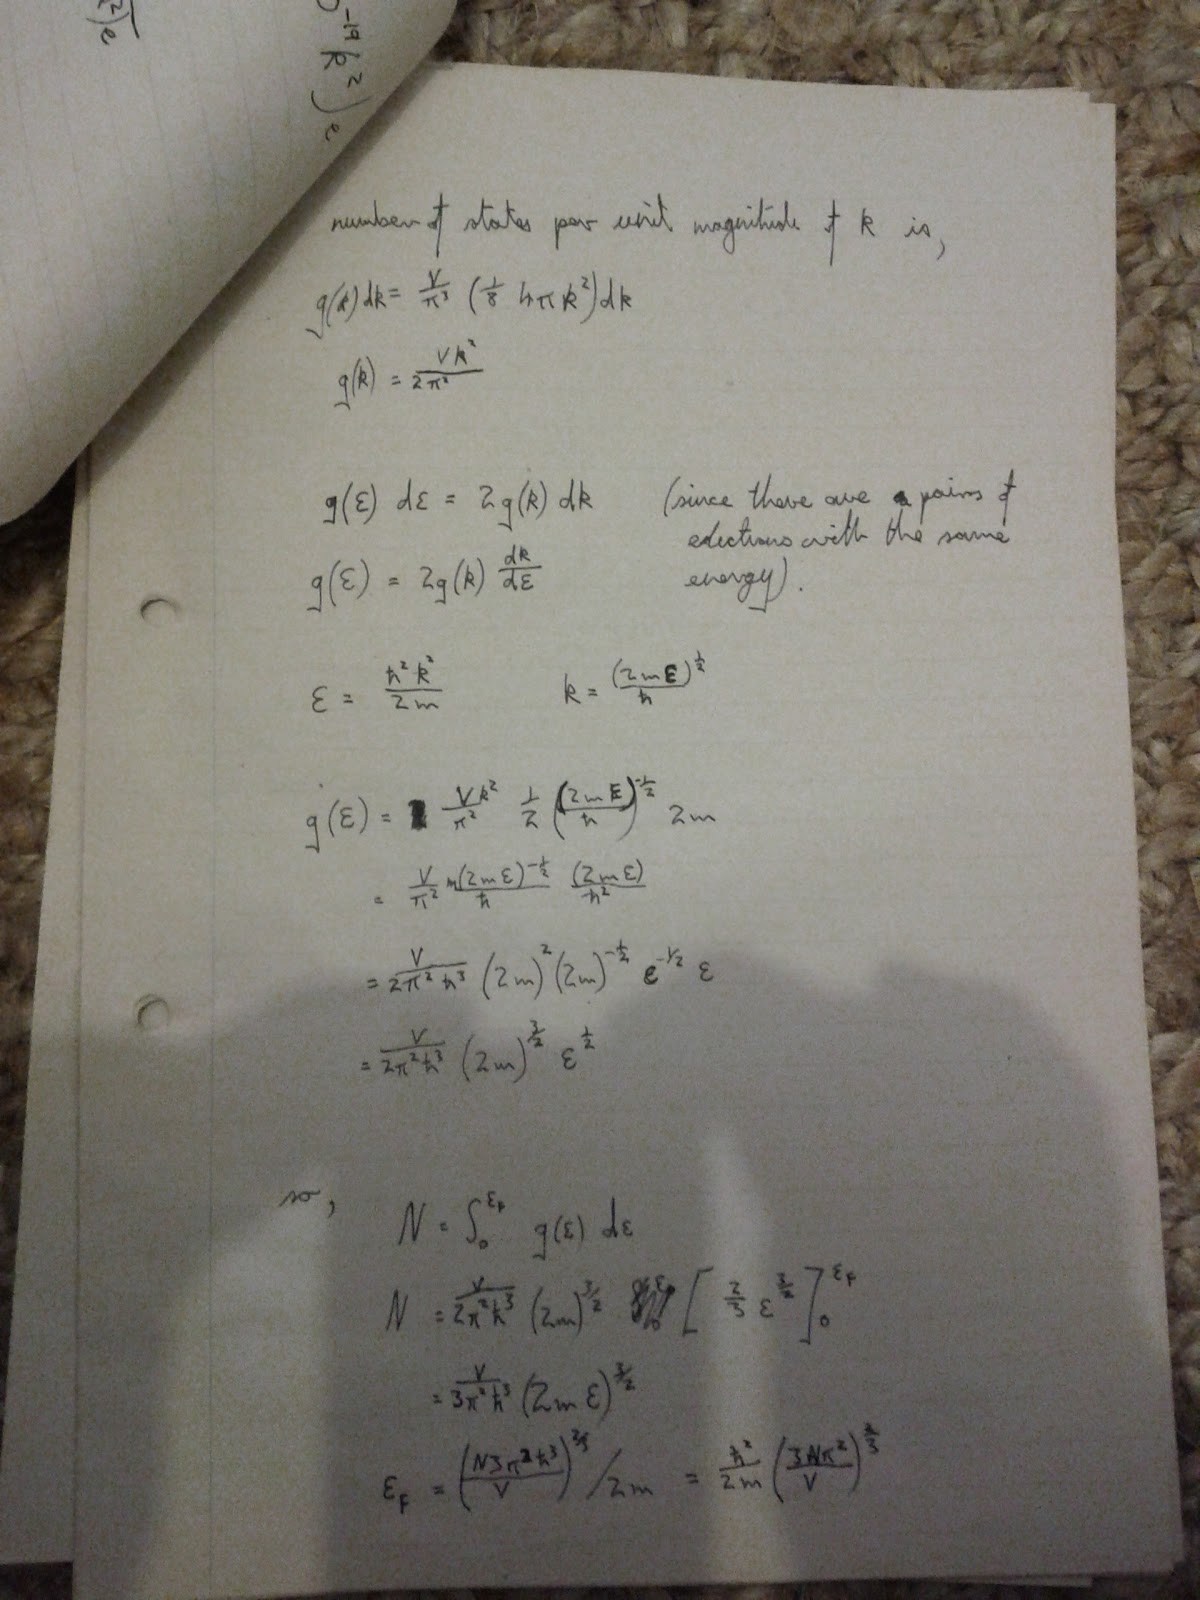 ²)e
⁻¹⁹k²)e
number of states per unit magnitude of k is,
g(k)dk = V/π³ (1/8 4πk²)dk
g(k) = Vk²/2π²
g(ε) dε = 2g(k) dk (since there are pairs of
electrons with the same
g(ε) = 2g(k) dk/dε energy).
ε = ħ²k²/2m k = (2mε)^½/ħ
g(ε) = Vk²/π² 1/2 (2mE/ħ)^-½ 2m
= V/π² m(2mε)^-½/ħ (2mε)/ħ²
= V/2π²ħ³ (2m)² (2m)^-½ ε^-1/2 ε
= V/2π²ħ³ (2m)^3/2 ε^½
so, N = ∫₀^εF g(ε) dε
N = V/2π²ħ³ (2m)^3/2 [2/3 ε^3/2]₀^εF
= V/3π²ħ³ (2mε)^3/2
εF = (N3π²ħ³/V)^2/3 /2m = ħ²/2m (3Nπ²/V)^2/3